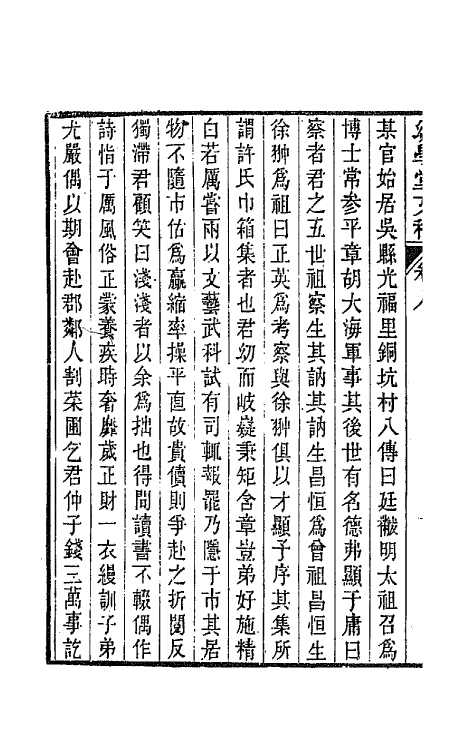 某官始居吳縣光福里銅坑村八傳曰廷黻明太祖召爲
博士常參平章胡大海軍事其後世有名德弗顯于庸曰
察者君之五世祖察生其訥其訥生昌恒爲曾祖昌恒生
徐翀爲祖曰正英爲考察與徐翀俱以才顯予序其集所
謂許氏巾箱集者也君幼而岐嶷秉矩含章豈弟好施精
白若厲嘗兩以文藝武科試有司輒報罷乃隱于市其居
物不隨市估爲贏縮率操平直故貴儥則爭赴之折閱反
獨滯君顧笑曰淺淺者以余爲拙也得間讀書不輟偶作
詩恉于厲風俗正蒙養疾時奢靡歲正財一衣縵訓子弟
尤嚴偶以期會赴郡鄰人割菜圃乞君仲子錢三萬事訖